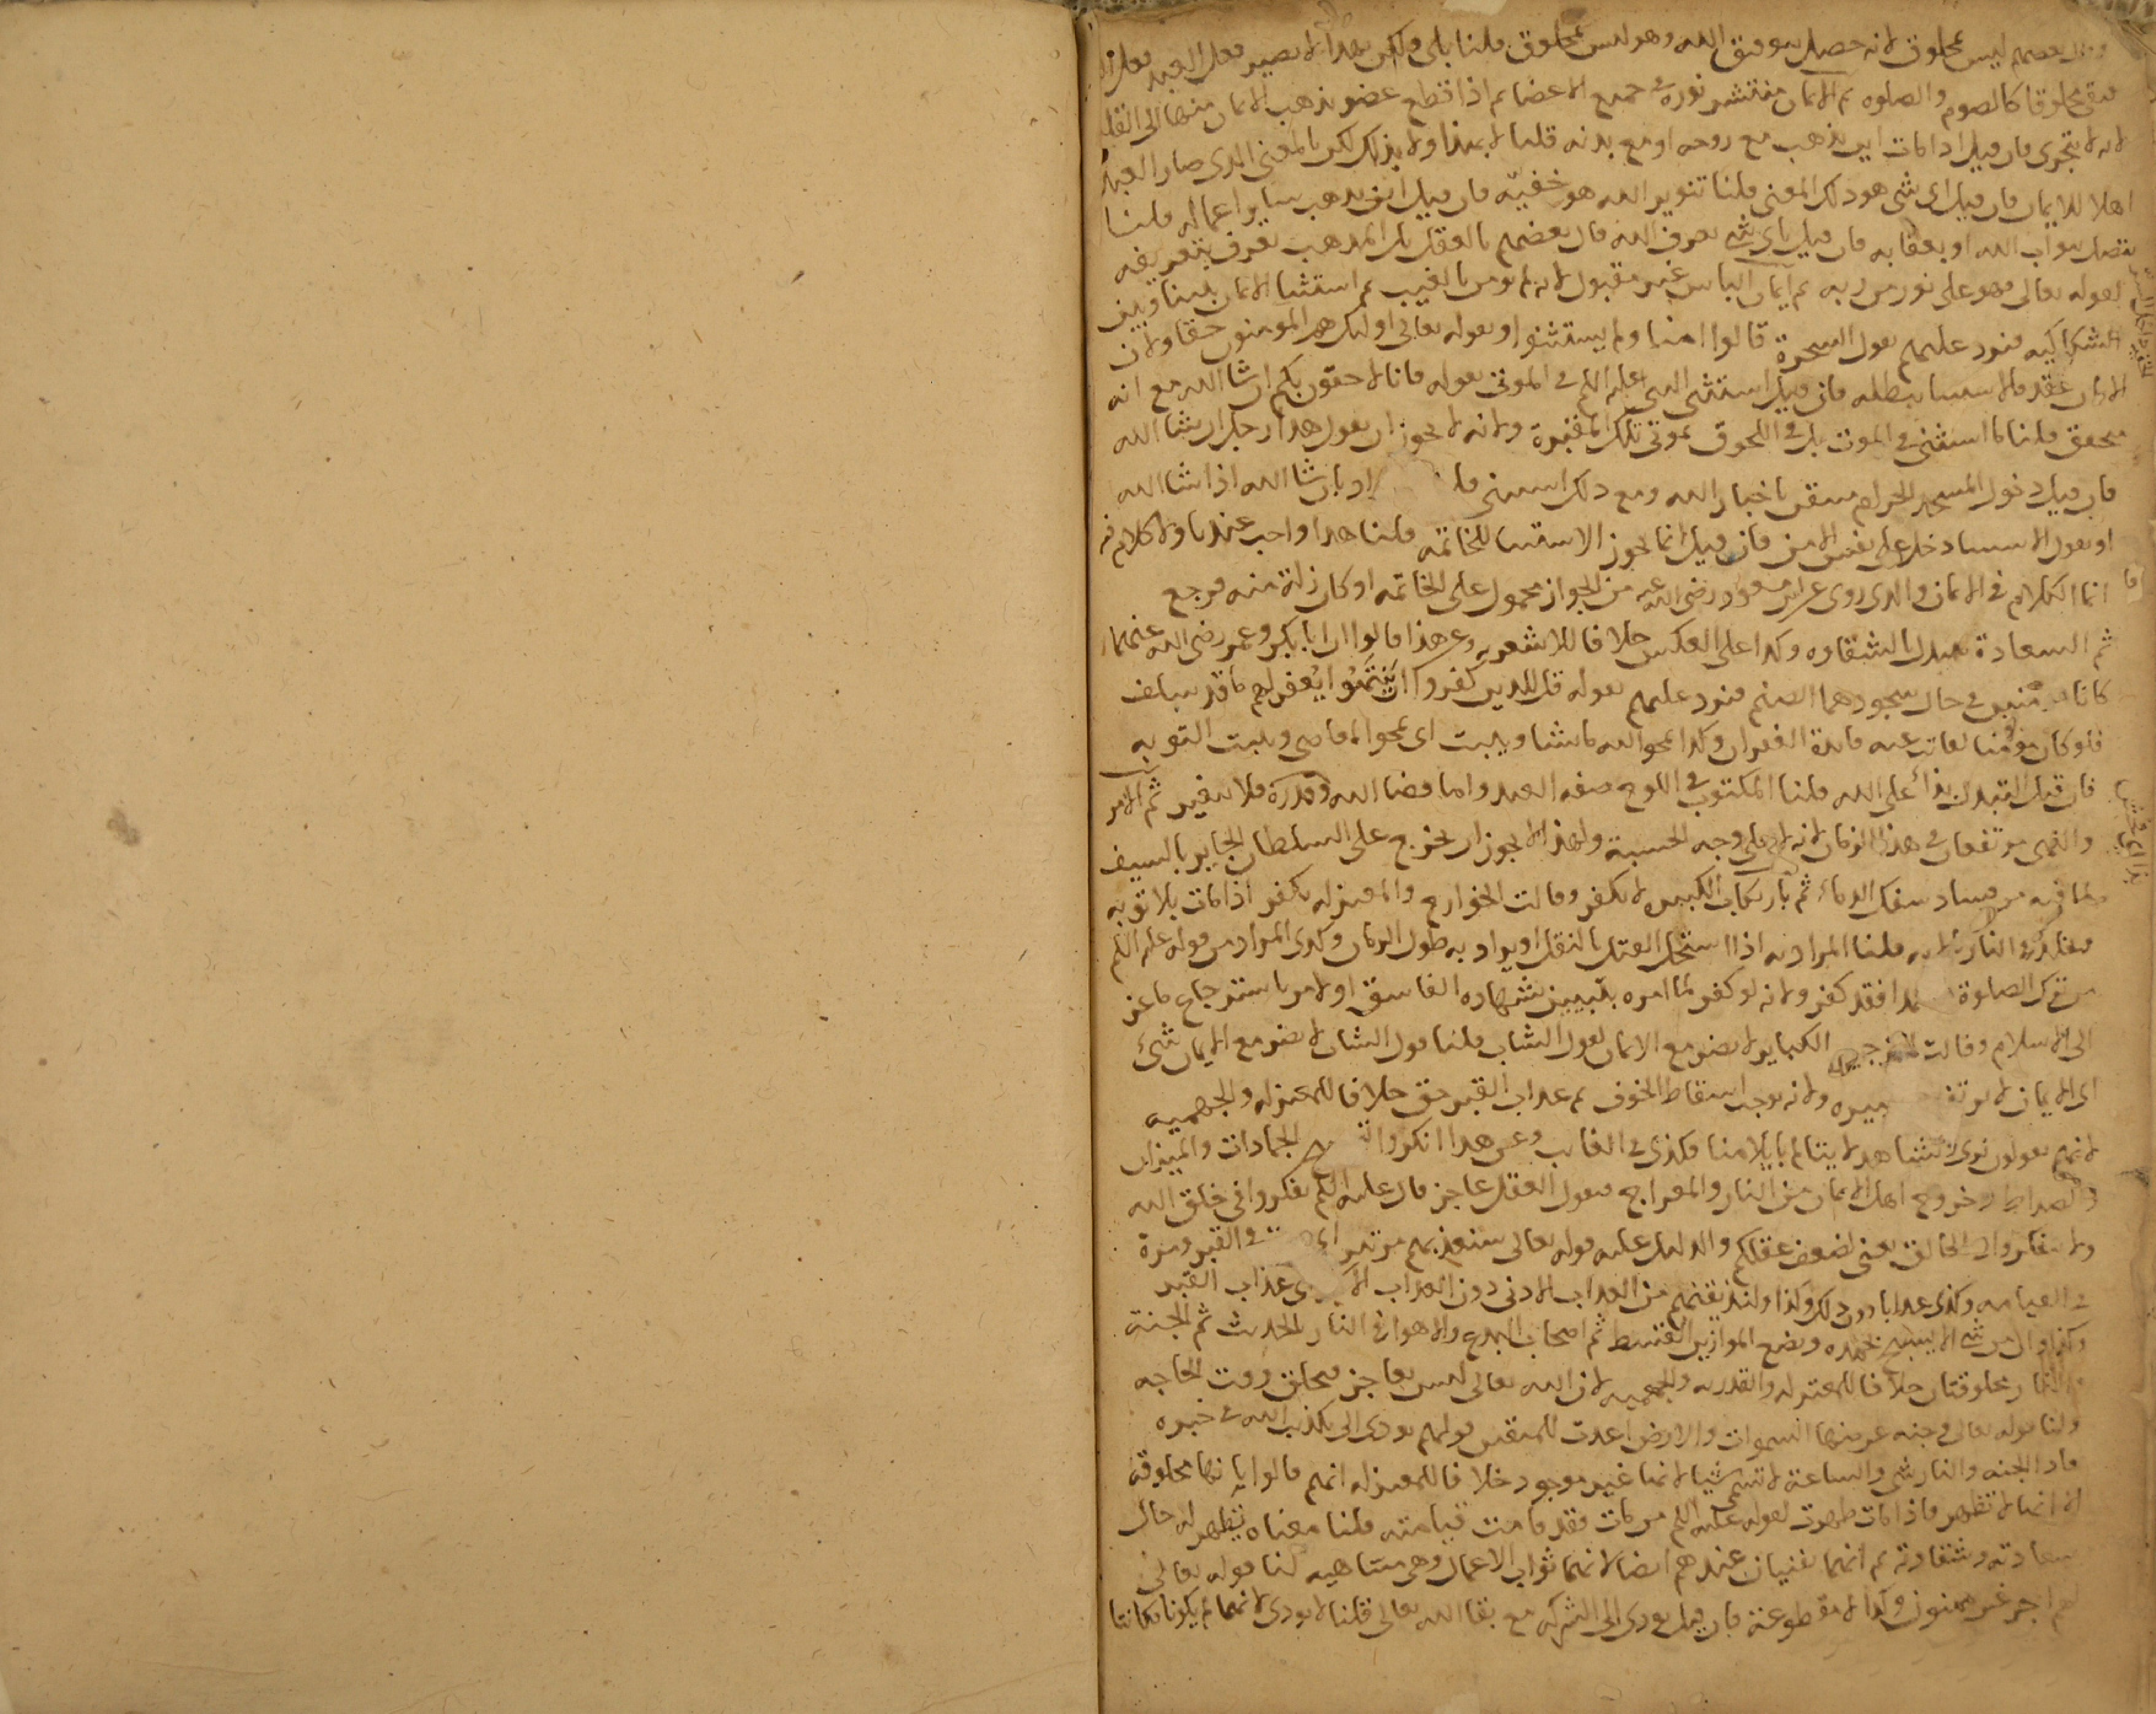 بعضهم ليس بمخلوق لانه حصل بتوفيق الله وهو ليس بمخلوق قلنا بلى ولكن بهذا لا يصير فعل العبد فعل
فبقي مخلوقا كالصوم والصلوه ثم الايمان منتشر نوره في جميع الاعضا ثم اذا قطع عضو يذهب الايمان منها الى القلب
لانه لا يتجزى فان قيل اذا مات اين يذهب مع روحه او مع بدنه قلنا لا بهذا ولا بذلك لكن بالمعنى الذي صار العبد
اهلا للايمان فان قيل اي شي هو ذلك المعنى قلنا تنوير الله هو خفيّه فان قيل اين يذهب ساير اعماله قلنا
يتصل بثواب الله او بعقابه فان قيل باي شي يعرف الله قال بعضهم بالعقل بل المذهب يعرف بتعريفه
لقوله تعالى فهو على نور من ربه ثم ايمان الباس غير مقبول لانه لم يومن بالغيب ثم استثنا الايمان بيننا وبين
الشكاكيه فنرد عليهم بقول السحرة قالوا امنا ولم يستثنوا وبقوله تعالى اولئك هم المومنون حقا ولان
الايمان عقد والاستثنا يبطله فان قيل استثنى النبي عليه السلام في الموتى بقوله وانا لاحقون بكم ان شا الله مع انه
متحقق قلنا ما استثنى في الموت بل في اللحوق بموتى تلك المقبرة ولانه لا يجوز ان يقول هذا رجل ان شا الله
فان قيل دخول المسجد الحرام متيقن باخبار الله ومع ذلك استثنى ان شا الله اذا شا الله
او نقول الاستثنا دخل على نفس الامن فان قيل انما يجوز الاستثنا للخاتمه قلنا هذا واجب عندنا ولا كلام فيه
انما الكلام في الايمان والذي روى عن ابن مسعود رضى الله عنه من الجواز محمول على الخاتمه او كان زلة منه فرجع
ثم السعادة تتبدل بالشقاوه وكذا على العكس خلافا للاشعريه وعن هذا قالوا ان ابا بكر وعمر رضى الله عنهما
كانا مومنين في حال سجودهما الصنم فنرد عليهم بقوله قل للذين كفروا ان ينتهوا يُغفر لهم ما قد سلف
فلو كان مومنا لفاتت عنه فايدة الغفران وكذا يمحو الله ما يشا ويثبت اى يمحو المعاصي ويثبت التوبه
فان قيل التبدل بدأ على الله قلنا المكتوب في اللوح صفه العبد واما قضا الله وقدره فلا يتغير ثم الامر
والنهى مرتفعان في هذا الزمان لانه لا على وجه الحسبة ولهذا لا يجوز ان يخرج على السلطان الجاير بالسيف
لما فيه من فساد سفك الدماء ثم بارتكاب الكبيره لا يكفر وقالت الخوارج والمعتزله يكفر اذا مات بلا توبه
فيخلد في النار قلنا المراد به اذا استحل القتل بالنقل او يراد به طول الزمان وكذى المراد من قوله عليه السلام
من ترك الصلوة فقد كفر ولانه لو كفر لما امره بتبيين شهاده الفاسق او لامر باستتر
الى الاسلام وقالت المرجيه الكباير لا يضر مع الايمان لقول الشاب قلنا قول الشاب لا يضر مع الايمان شئ
اى الايمان لا يرتفع ولانه يوجب اسقاط الخوف ثم عذاب القبر حق خلافا للمعتزله والجهميه
لانهم يقولون نرى ونشاهد لا يتالم بايلامنا فكذى في الغايب وعن هذا انكروا الجمادات والميزان
والصراط وخروج اهل الايمان من النار والمعراج فنقول العقل عاجز قال عليه السلام تفكروا في خلق الله
ولا تتفكروا في الخالق يعنى لضعف عقلكم والدليل عليه قوله تعالى سنعذبهم مرتين اى في القبر ومرة
في القيامه وكذى عذابا دون ذلك وكذا ولنذيقنهم من العذاب الادنى دون العذاب عذاب القبر
وكذا وان من شى الا يسبح بحمده ونضع الموازين القسط ثم اصحاب البدع والاهوا في النار للحديث ثم الجنة
والنار مخلوقتان خلافا للمعتزله والقدريه والجهميه لان الله تعالى ليس بعاجز فيخلق وقت الحاجه
ولنا قوله تعالى وجنه عرضها السموات والارض اعدت للمتقين قولهم يودى الى تكذيب الله في خبره
الجنه والنار شى والساعة لا تسمى شيا لانها غير موجود خلافا للمعتزله انهم قالوا بانها مخلوقه
الا انها لا تظهر فاذا مات ظهرت لقوله عليه السلام من مات فقد قامت قيامته قلنا معناه يظهر له حال
سعادته وشقاوته ثم انهما تفنيان عندهم ايضا لانهما ثواب الاعمال وهى متناهيه لنا قوله تعالى
لهم اجر غير ممنون وكذا لا مقطوعة فان قيل يودى الى الشركه مع بقا الله تعالى قلنا لا يودى لانهما لم يكونا فكانتا